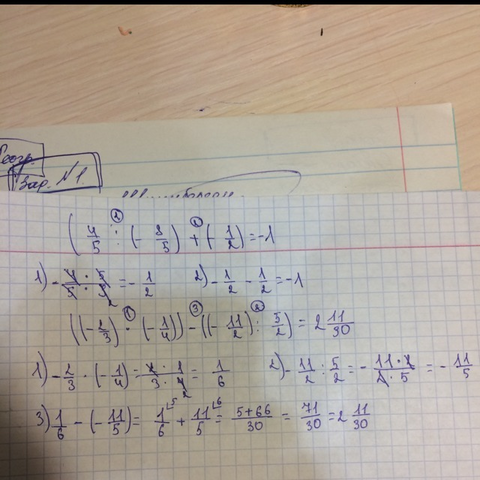 Вар. №1
( 4/5 : (- 8/5) + (- 1/2) = -1
1) - 4/5 · 5/8 = - 1/2 2) - 1/2 - 1/2 = -1
((- 2/3) · (- 1/4)) - ((- 11/2) : 5/2) = 2 11/30
1) - 2/3 · (- 1/4) = 2/3 · 1/4 = 1/6 2) - 11/2 : 5/2 = - 11·2/2·5 = - 11/5
3) 1/6 - (- 11/5) = 1/6 + 11/5 = 5+66/30 = 71/30 = 2 11/30